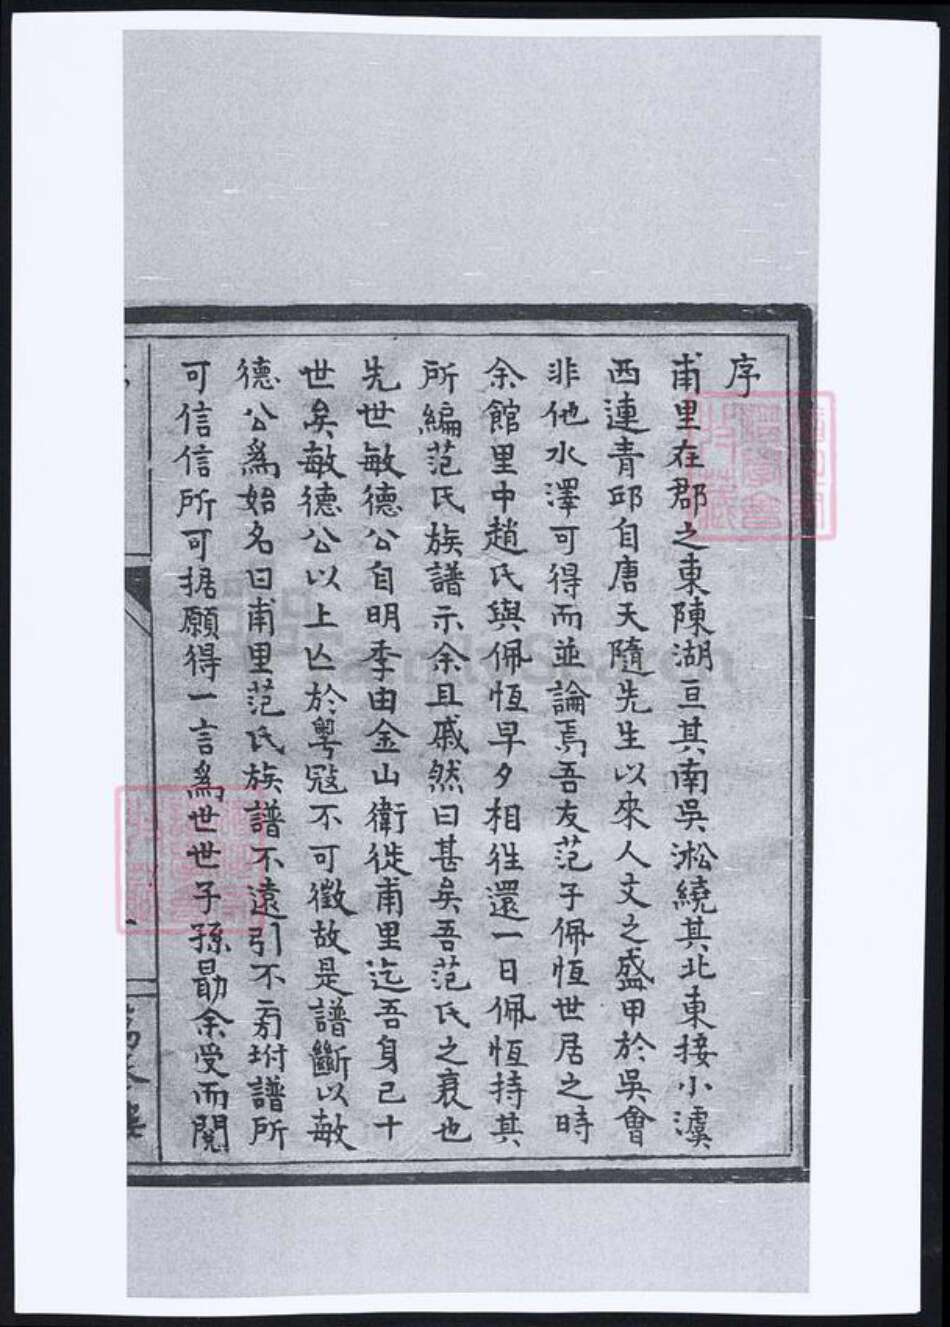 序
甫里在郡之東陳湖亘其南吳淞繞其北東接小澞
西連青邱自唐天隨先生以來人文之盛甲於吳會
非他水澤可得而並論焉吾友范子佩恆世居之時
余館里中趙氏與佩恆早夕相往還一日佩恆持其
所編范氏族譜示余且戚然曰甚矣吾范氏之衰也
先世敏德公自明季由金山衛徙甫里迄吾身已十
世矣敏德公以上亾於粵寇不可徵故是譜斷以敏
德公爲始名曰甫里范氏族譜不遠引不旁坿譜所
可信信所可据願得一言爲世世子孫勗余受而閱
FamilySearch